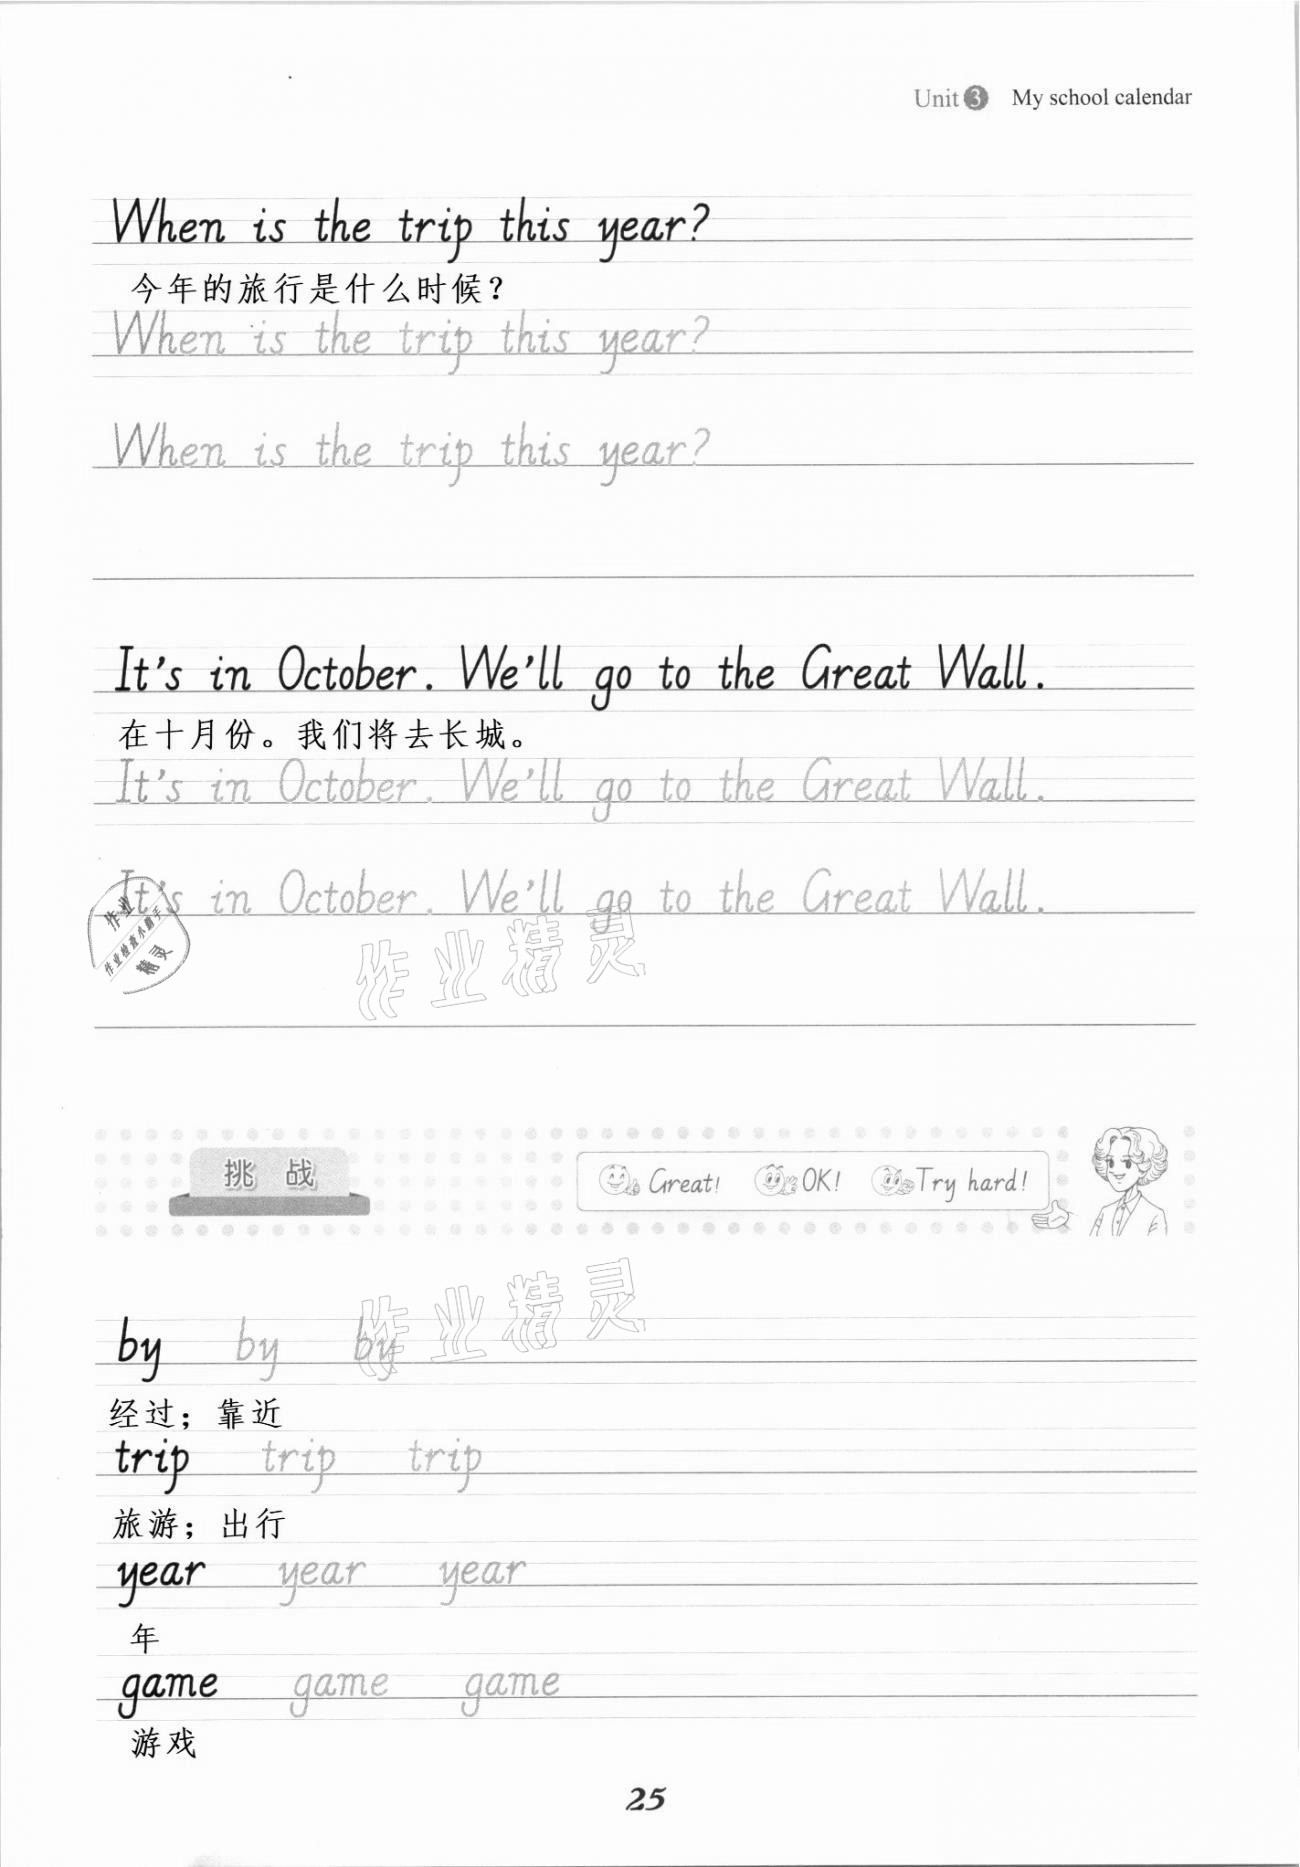 Unit 3 My school calendar
When is the trip this year?
今年的旅行是什么时候？
When is the trip this year?
When is the trip this year?
It's in October. We'll go to the Great Wall.
在十月份。我们将去长城。
It's in October. We'll go to the Great Wall.
It's in October. We'll go to the Great Wall.
作业
作业检查小助手
精灵
作业精灵
挑战
Great! OK! Try hard!
作业精灵
by by by
经过；靠近
trip trip trip
旅游；出行
year year year
年
game game game
游戏
25